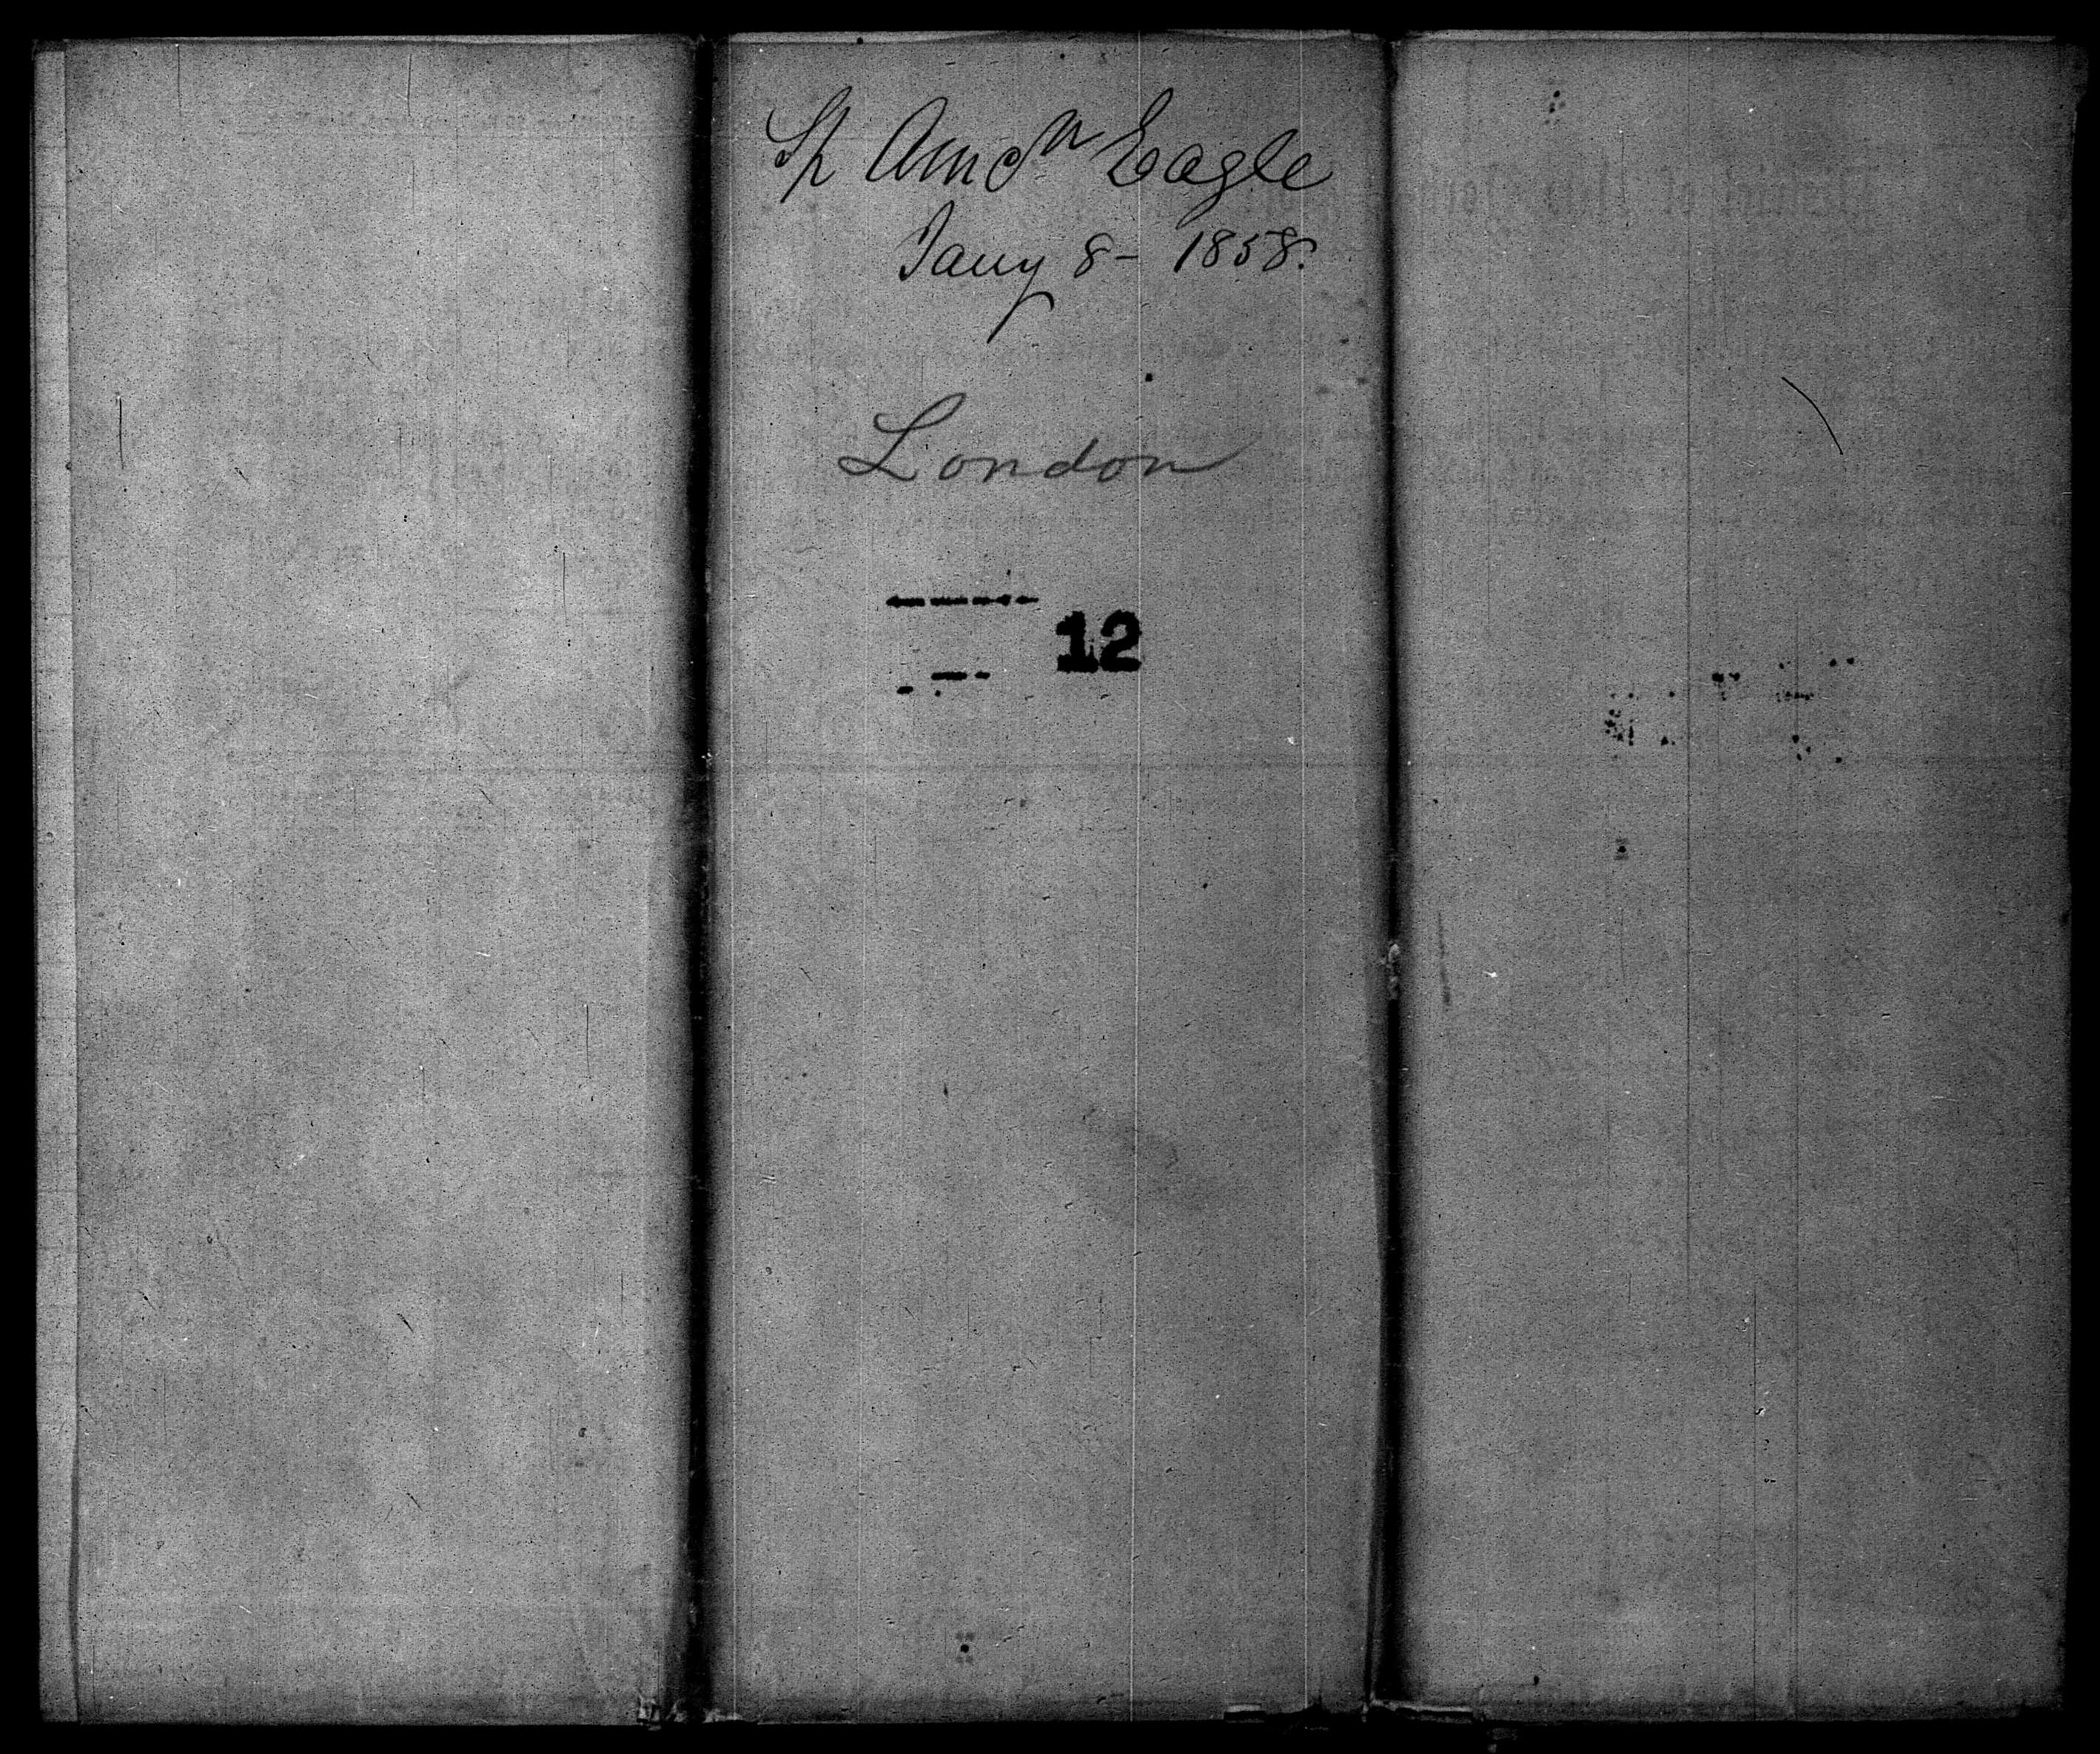 Sp Amcn Eagle
Jany 8 - 1858.
London
12